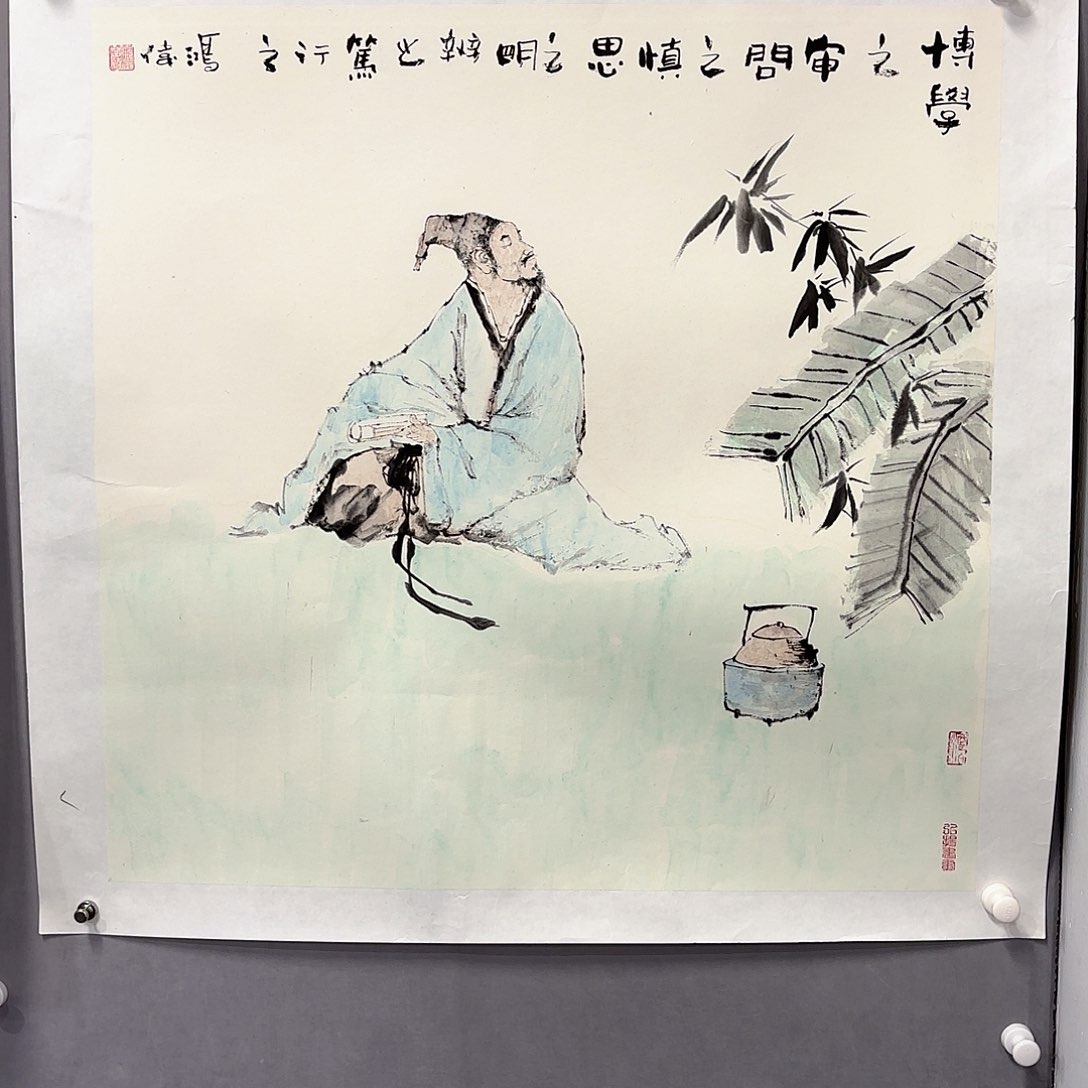 博學之审問之慎思之明辨之篤行之 鴻偉